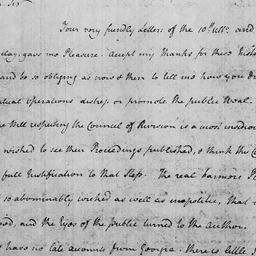 Your very friendly Letters of the 10th Ulto. and
day, gave me Pleasure. Accept my Thanks for these
and be so obliging as now & then to tell me how you
operations distress or promote the public Weal.
respecting the Council of Revision is a most
wished to see their Proceedings published, & think the
full Justification to that Step. The real
so abominably wicked as well as impolitic, that
and the Eyes of the public turned to the Author.
have no late accounts from Georgia. there is little